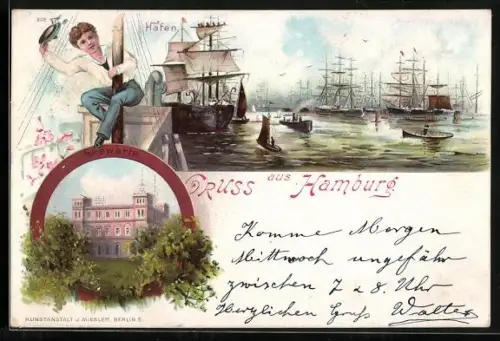 202
Hafen
Seewarte
Gruss aus Hamburg
Komme Morgen
Mittwoch ungefähr
zwischen 7 & 8. Uhr
Herzlichen Gruß Walter
KUNSTANSTALT J. MIESLER, BERLIN S.